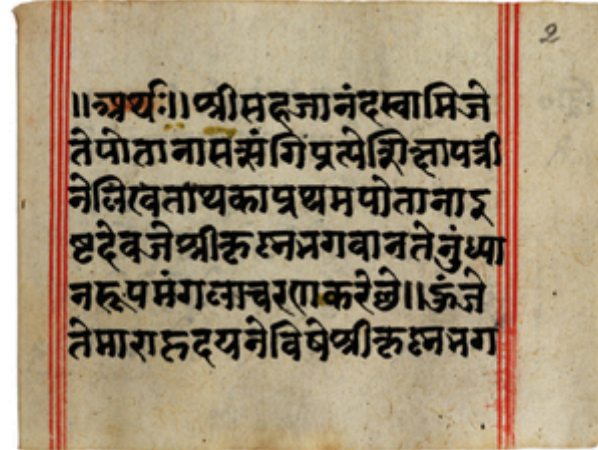 2
॥अर्थः॥ श्रीसहजानंदस्वामिजे
तेपोतानासत्संगिप्रत्येशिक्षापत्री
नेलिखताथकाप्रथमपोतानाइ
ष्टदेवजेश्रीकृष्णभगवानतेनुंध्या
नरूपमंगलाचरणकरेछे॥ हुंजे
तेमाराहृदयनेविषेश्रीकृष्णभग